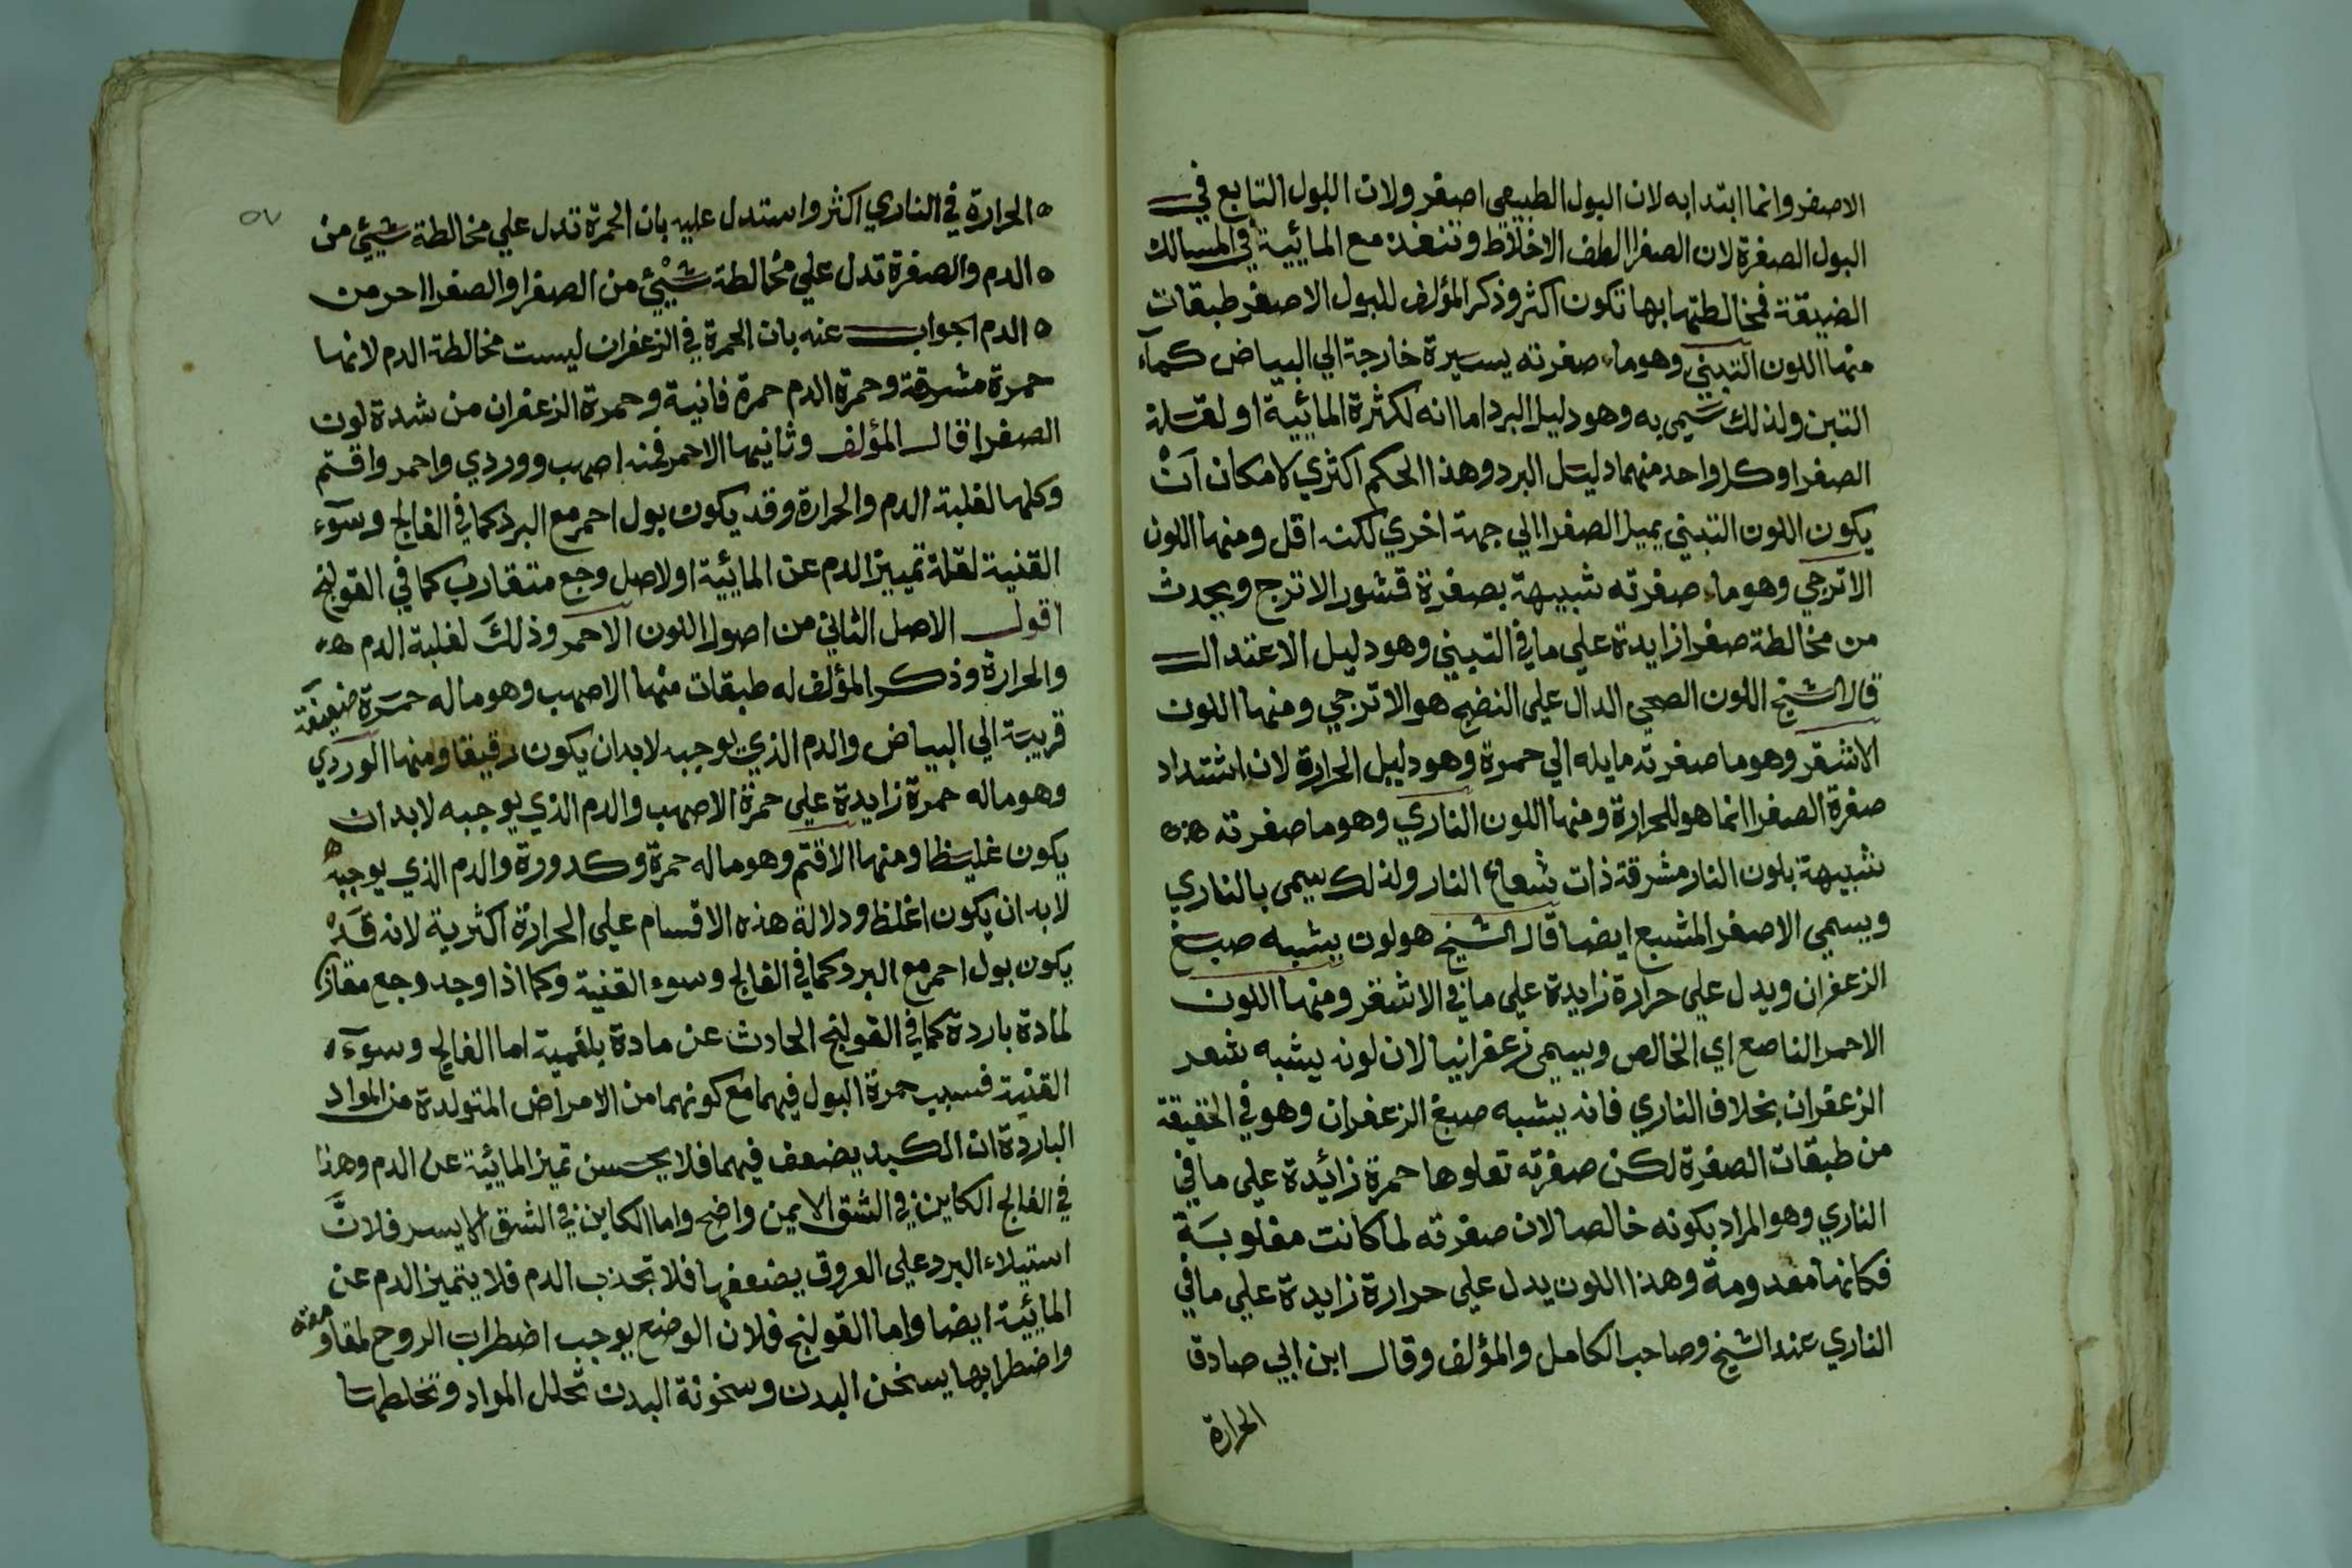 الاصفر وانما ابتدا به لان البول الطبيعي اصفر ولان اللبول التابع في
البول الصفرة لان الصفرا الطف الاخلاط وتنفذ مع المائيية في المسالك
الضيقة فمخالطتها بها تكون اكثر وذكر المؤلف للبول الاصفر طبقات
منها اللون التبني وهو ماء صفرته يسيرة خارجة الي البياض كماء
التبن ولذلك سيمى به وهو دليل البرد اما انه لكثرة المائيية او لقلة
الصفرا وكل واحد منهما دليل البرد وهذا الحكم اكثري لامكان ان
يكون اللون التبني بميل الصفرا الي جهة اخري لكنه اقل ومنها اللون
الاترجي وهو ماء صفرته شبيهة بصفرة قشور الاترج ويحدث
من مخالطة صفرا زايدة علي ما في التبني وهو دليل الاعتدال
قال الشيخ اللون الصحي الدال علي النضج هو الاترجي ومنها اللون
الاشقر وهو ما صفرته مايله الي حمرة وهو دليل الحرارة لان اشتداد
صفرة الصفرا انما هو للحرارة ومنها اللون الناري وهو ما صفرته هذه
شبيهة بلون النار مشرقة ذات شعاع النار ولذلك سيمى بالناري
ويسمي الاصفر المشبع ايضا قال الشيخ هو لون يشبه صبغ
الزعفران ويدل علي حرارة زايدة علي ما في الاشقر ومنها اللون
الاحمر الناصع اي الخالص ويسمي زعفرانيا لان لونه يشبه شعر
الزعفران بخلاف الناري فانه يشبه صبغ الزعفران وهو في الحقيقة
من طبقات الصفرة لكن صفرته تعلوها حمرة زائدة علي ما في
الناري وهو المراد بكونه خالصا لان صفرته لما كانت مغلوبة
فكانها معدومة وهذا اللون يدل علي حرارة زايدة علي ما في
الناري عند الشيخ وصاحب الكامل والمؤلف وقال ابن ابي صادق
الحرارة
٥٧
الحرارة في الناري اكثر واستدل عليه بان الحمرة تدل علي مخالطة شيئ من
الدم والصفرة تدل علي مخالطة شيئ من الصفرا والصفرا احر من
الدم اجواب عنه بان الحمرة في الزعفران ليست مخالطة الدم لانها
حمرة مشرقة وحمرة الدم حمرة فانية وحمرة الزعفران من شدة لون
الصفرا قال المؤلف وثانيها الاحمر فمنه اصهب ووردي واحمر واقتم
وكلها لغلبة الدم والحرارة وقد يكون بول احمر مع البرد كما في الفالج وسوء
القنية لقلة تمييز الدم عن المائيية او لاصل وجع متقارب كما في القولنج
اقول الاصل الثاني من اصول اللون الاحمر وذلك لغلبة الدم
والحرارة وذكر المؤلف له طبقات منها الاصهب وهو ما له حمرة ضعيفة
قريبة الي البياض والدم الذي يوجبه لابد ان يكون رقيقا ومنها الوردي
وهو ما له حمرة زايدة علي حمرة الاصهب والدم الذي يوجبه لابد ان
يكون غليظا ومنها الاقتم وهو ما له حمرة وكدورة والدم الذي يوجبه
لابد ان يكون اغلظ ودلالة هذه الاقسام علي الحرارة اكثرية لانه قد
يكون بول احمر مع البرد كما في الفالج وسوء القنية وكما اذا وجد وجع مقارن
لمادة باردة كما في القولنج الحادث عن مادة بلغمية اما الفالج وسوء
القنية فسبب حمرة البول فيهما مع كونهما من الامراض المتولدة من المواد
الباردة ان الكبد يضعف فيهما فلا يحسن تميز المائية عن الدم وهذا
في الفالج الكاين في الشق الايمن واضح واما الكاين في الشق الايسر فلان
استيلاء البرد علي العروق يضعفها فلا تجذب الدم فلا يتميز الدم عن
المائيية ايضا واما القولنج فلان الوضع يوجب اضطراب الروح لمقاومته
واضطرابها يسخن البدن وسخونة البدن تحلل المواد وتخلطها